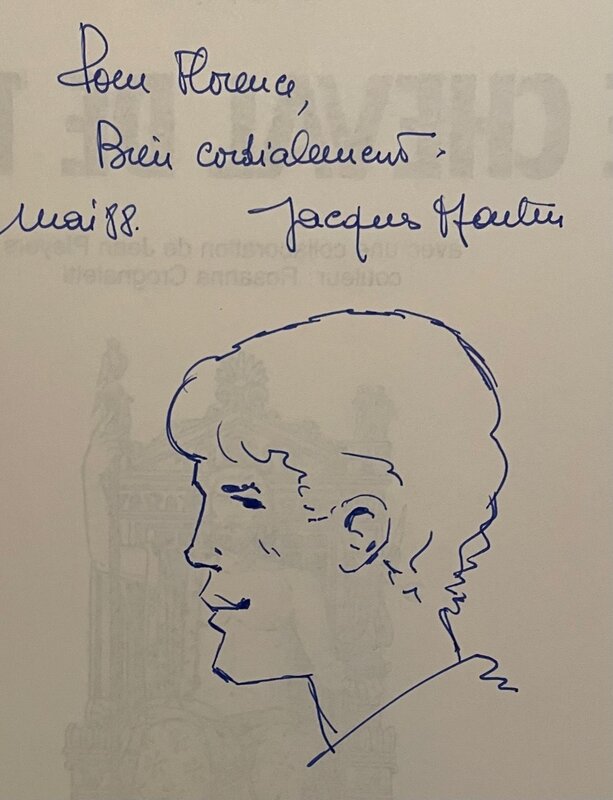 Pour Florence,
Bien cordialement.
Mai 88. Jacques Martin
CHEVAL DE T
avec une collaboration de Jean Pleyers
couleur : Rosanna Crognaletti